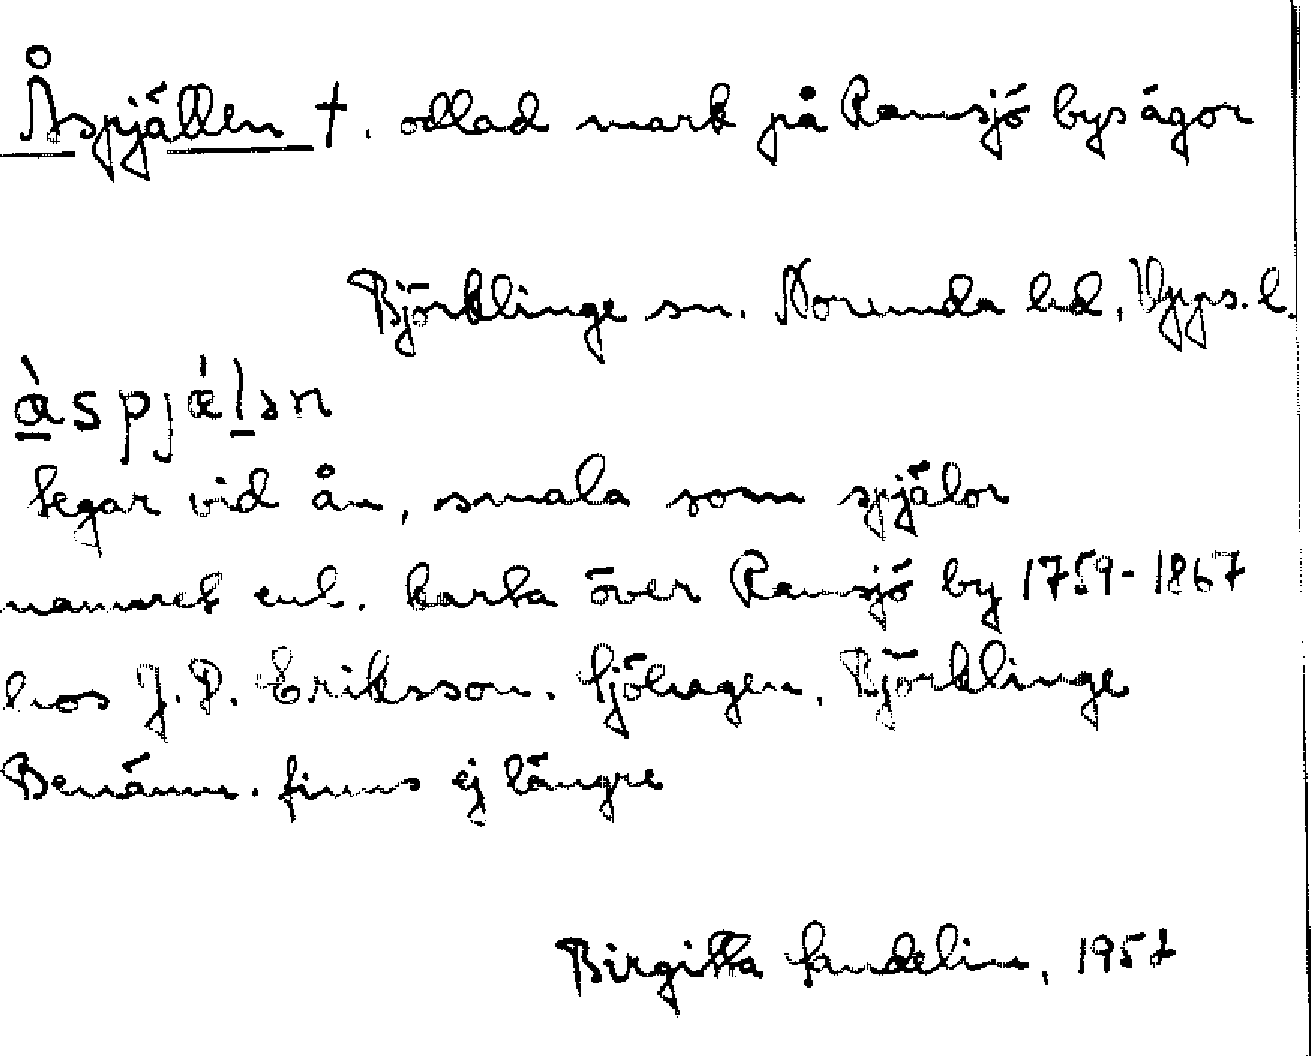 Åspjällen †. odlad mark på Ramsjö bys ägor
Björklinge sn. Norunda hd, Upps. l.
tegar vid ån, smala som spjälor
namnet enl. karta över Ramsjö by 1759-1867
hos J.P. Eriksson. Sjöhagen, Björklinge
Benämn. finns ej längre
Birgitta Sandelin, 1957